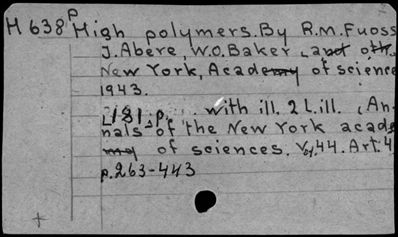 H 638 P High polymers. By R.M. Fuoss
J. Abere, W.O. Baker, and oth.
New York, Academy of science
1943.
181 p. with ill. 2 L. ill. (An-
nals of the New York acade
my of sciences. V. 44. Art. 4
p. 263-443